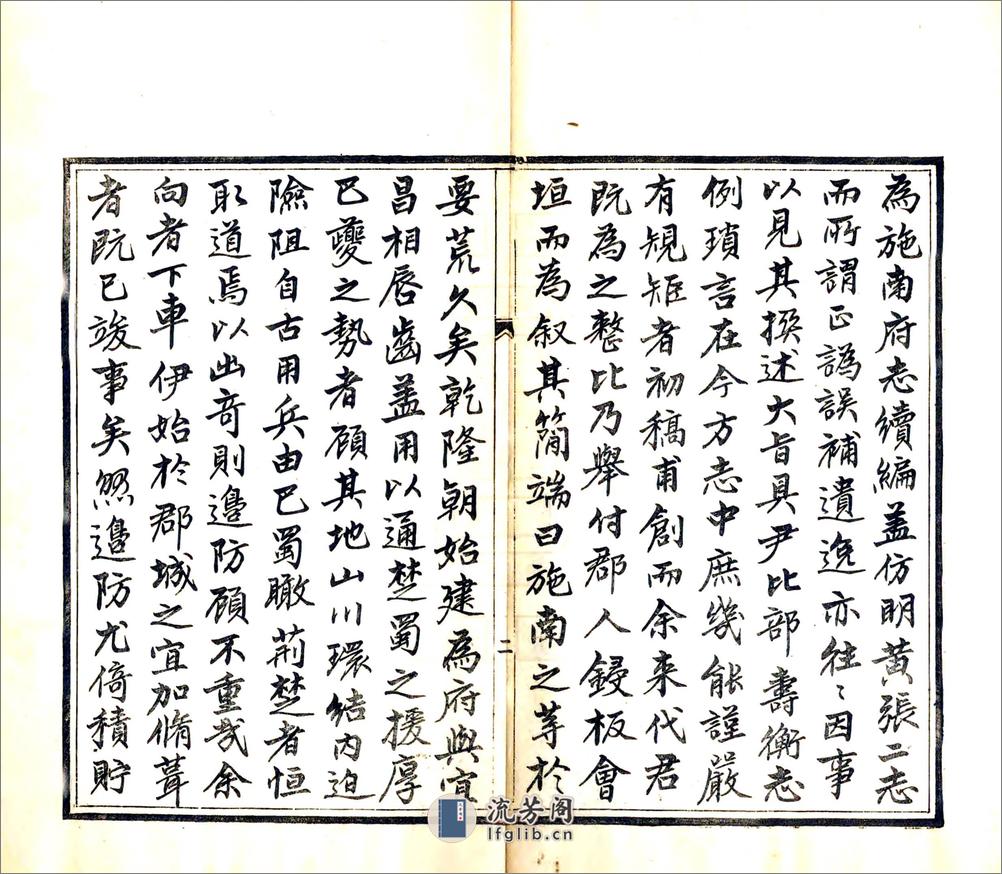 為施南府志續編盖仿明黃張二志
而所謂正譌誤補遺逸亦往〻因事
以見其撰述大旨具尹比部壽衡志
例瑣言在今方志中庶幾能謹嚴
有規矩者初稿甫創而余来代君
既為之整比乃舉付郡人鋟板會
垣而為叙其簡端曰施南之等於
要荒久矣乾隆朝始建為府與宜
昌相唇齒盖用以通楚蜀之援厚
巴夔之勢者顧其地山川環結内迫
險阻自古用兵由巴蜀瞰荊楚者恒
取道焉以出奇則邉防顧不重哉余
向者下車伊始於郡城之宜加脩葺
者既已竣事矣然邉防尤倚積貯
二
流芳阁
lfglib.cn